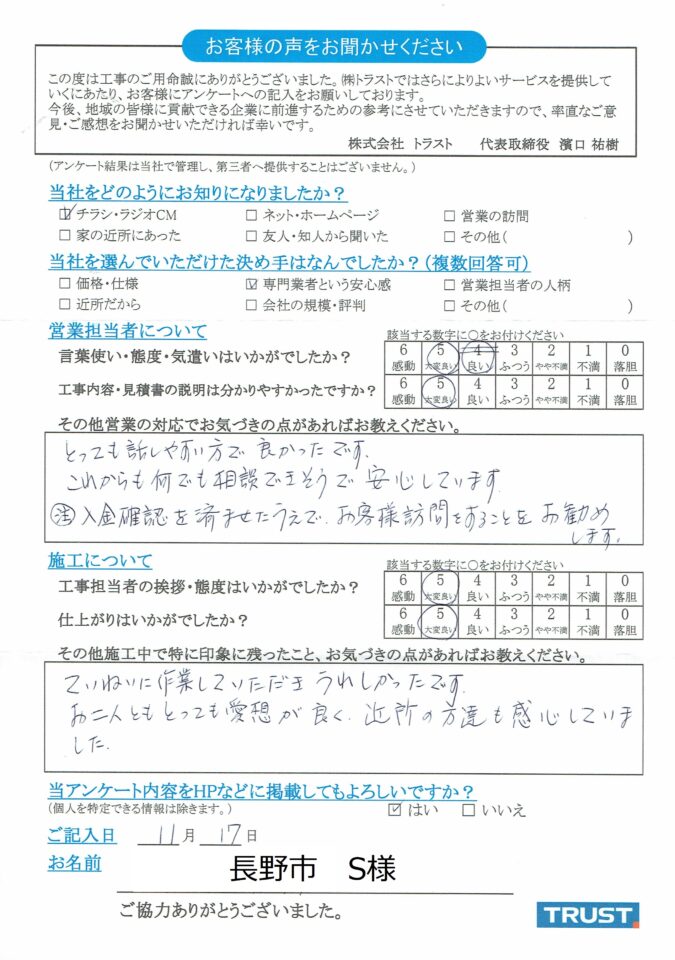 お客様の声をお聞かせください
この度は工事のご用命誠にありがとうございました。㈱トラストではさらによりよいサービスを提供して
いくにあたり、お客様にアンケートへの記入をお願いしております。
今後、地域の皆様に貢献できる企業に前進するための参考にさせていただきますので、率直なご意
見・ご感想をお聞かせいただければ幸いです。
株式会社 トラスト 代表取締役 濱口 祐樹
(アンケート結果は当社で管理し、第三者へ提供することはございません。)
当社をどのようにお知りになりましたか?
☑ チラシ・ラジオCM □ ネット・ホームページ □ 営業の訪問
□ 家の近所にあった □ 友人・知人から聞いた □ その他( )
当社を選んでいただけた決め手はなんでしたか?(複数回答可)
□ 価格・仕様 ☑ 専門業者という安心感 □ 営業担当者の人柄
□ 近所だから □ 会社の規模・評判 □ その他( )
営業担当者について 該当する数字に○をお付けください
言葉使い・態度・気遣いはいかがでしたか? 6 5 4 3 2 1 0
感動 大変良い 良い ふつう やや不満 不満 落胆
工事内容・見積書の説明は分かりやすかったですか? 6 5 4 3 2 1 0
感動 大変良い 良い ふつう やや不満 不満 落胆
その他営業の対応でお気づきの点があればお教えください。
とっても話しやすい方で良かったです。
これからも何でも相談できそうで安心しています。
㊟入金確認を済ませたうえで、お客様訪問をすることをお勧め
します。
施工について 該当する数字に○をお付けください
工事担当者の挨拶・態度はいかがでしたか? 6 5 4 3 2 1 0
感動 大変良い 良い ふつう やや不満 不満 落胆
仕上がりはいかがでしたか? 6 5 4 3 2 1 0
感動 大変良い 良い ふつう やや不満 不満 落胆
その他施工中で特に印象に残ったこと、お気づきの点があればお教えください。
ていねいに作業していただきうれしかったです。
お二人ともとっても愛想が良く、近所の方達も感心していま
した。
当アンケート内容をHPなどに掲載してもよろしいですか?
(個人を特定できる情報は除きます。) ☑ はい □ いいえ
ご記入日 11月 17日
お名前 長野市 S様
ご協力ありがとうございました。
TRUST.